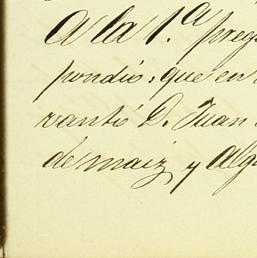 A la 1.ª preg
pondió: que en
vantó D. Juan
de maiz y Alg